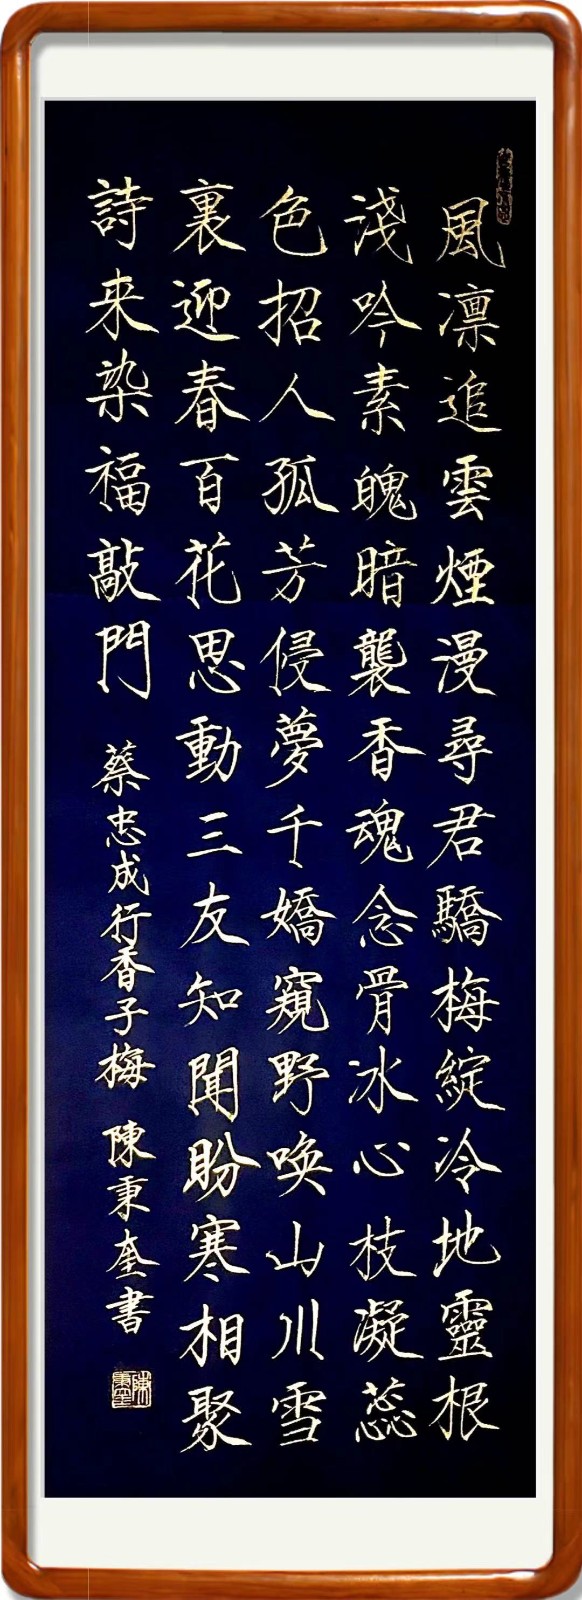 風凛追雲煙漫尋君驕梅綻冷地靈根
淺吟素魄暗襲香魂念骨冰心枝凝蕊
色招人孤芳侵夢千嬌窺野喚山川雪
裏迎春百花思動三友知聞盼寒相聚
詩来染福敲門
蔡忠成行香子梅 陳秉奎書
陳秉奎